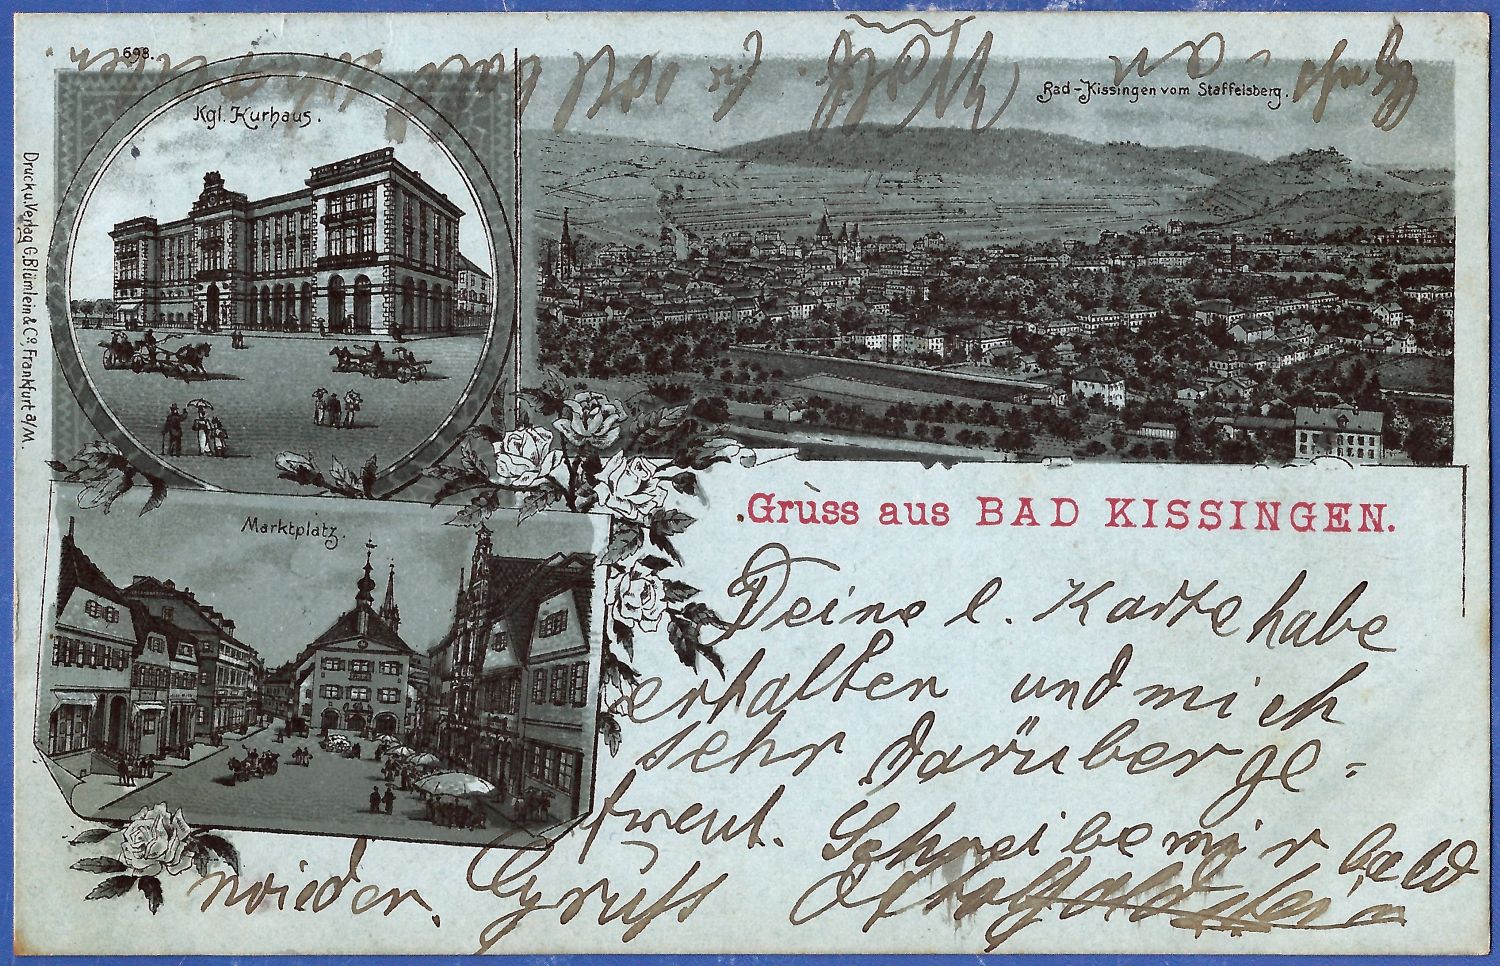 698.
Kgl. Kurhaus.
Bad-Kissingen vom Staffelsberg.
Druck u. Verlag G. Blümlein & Co., Frankfurt a/M.
Marktplatz.
Gruss aus BAD KISSINGEN.
Deine l. Karte habe
erhalten und mich
sehr darüber ge=
freut. Schreibe mir bald
wieder. Gruß
Gruß an